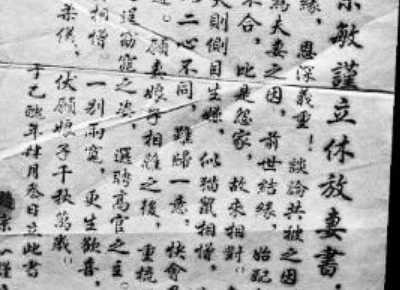 宗敏謹立休放妻書，
緣，恩深義重！談論共被之因
為夫妻之因，前世結緣，始配
來合，此是怨家，故來相對。
夫則側目生嫌，似猫鼠相憎，
二心不同，難歸一意，快會
。願妻娘子相離之後，重梳
逞窈窕之姿，選聘高官之主。
相憎。一别兩寬，更生歡喜，
柔儀，伏願娘子千秋萬歲。
于乙酉年肆月叁日立此書